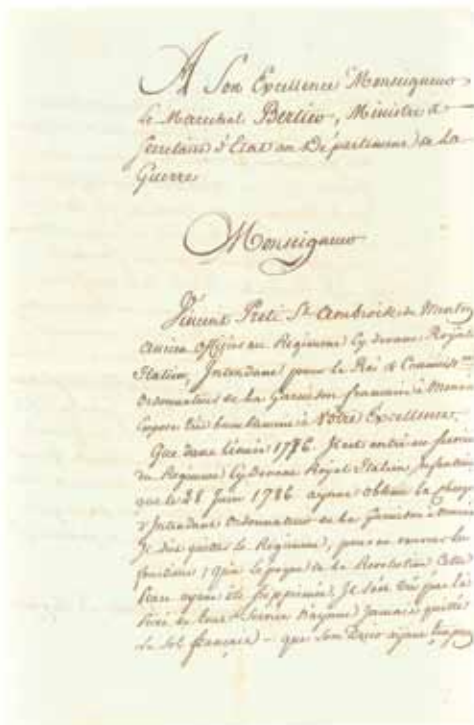 A Son Excellence Monseigneur
Le Marechal Berthier, Ministre &
Secretaire d'Etat au Département de la
Guerre
Monseigneur
Vincent Preti St. Ambroise de Menton
ancien officier au Regiment cy devant Royal
Italien, Intendant pour le Roi & Commiss.
ordonnateur de la Garnison française à Mona
Expose très humblement à Votre Excellence.
Que dans l'année 1776. Il est entré au service
du Regiment cy devant Royal Italien, Infanterie
que le 28 Juin 1786 ayant obtenu la charge
d'Intendant ordonnateur de la Garnison à
Il dut quitter le Regiment, pour en
fonctions; Que la Revolution Cette
Place ayant été supprimée, Il s'en
de tout service n'ayant jamais quitté
le sol français - que son ayant